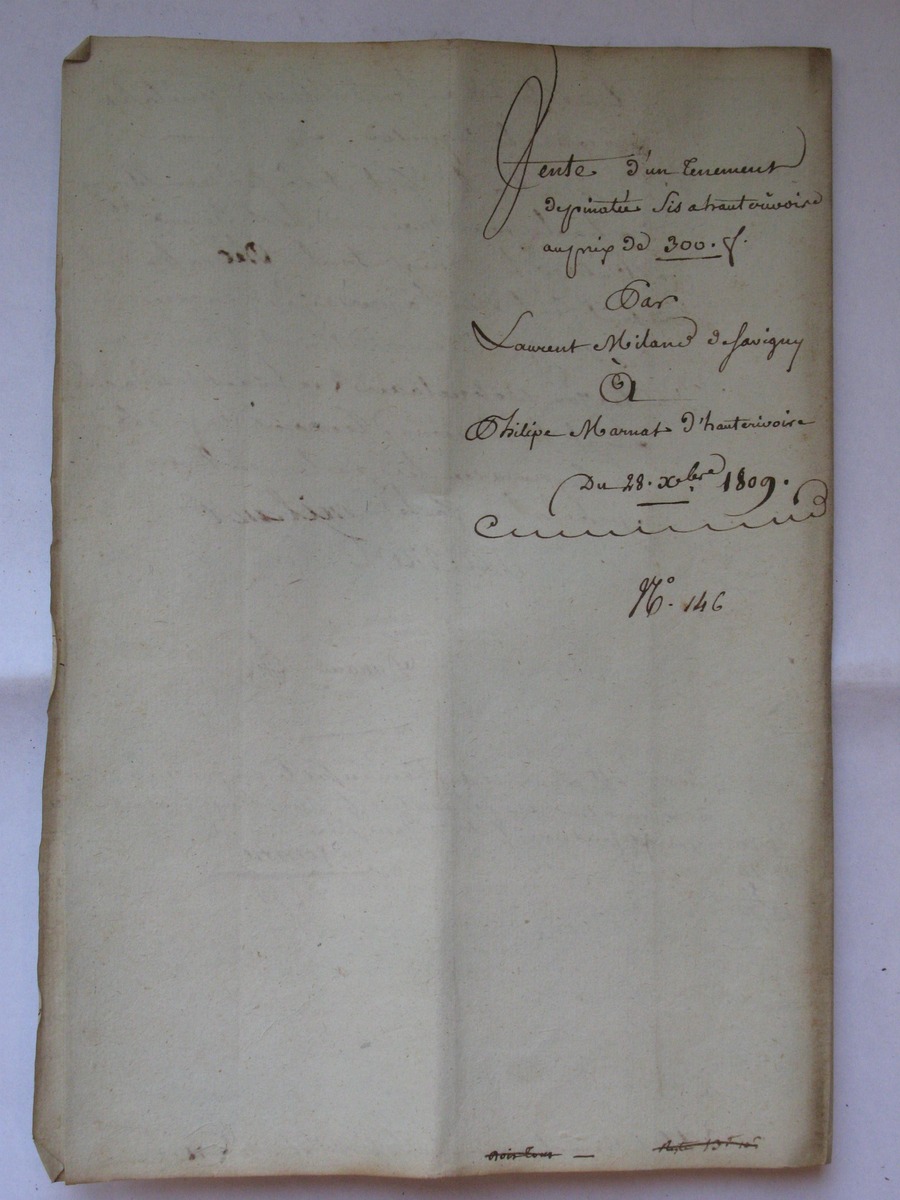 Vente d'un tenement
de pinatée sis a hauterivoire
au prix de 300. f.
Par
Laurent Miland de Savigny
À
Philipe Marnat d'hauterivoire
Du 28. Xbre 1809.
N.º 146